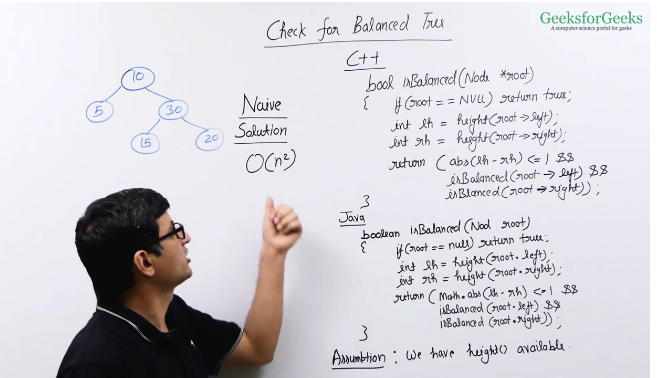 GeeksforGeeks
A computer science portal for geeks
Check for Balanced Tree
10
5
30
15
20
Naive
Solution
O(n²)
C++
bool isBalanced(Node *root)
{ if(root == NULL) return true;
int lh = height(root→left);
int rh = height(root→right);
return (abs(lh-rh) <= 1 &&
isBalanced(root→left) &&
isBlanced(root→right));
}
Java
boolean isBalanced(Nod root)
{ if(root == null) return true;
int lh = height(root.left);
int rh = height(root.right);
return (Math.abs(lh-rh) <= 1 &&
isBalanced(root.left) &&
isBalanced(root.right));
}
Assumption : We have height() available.